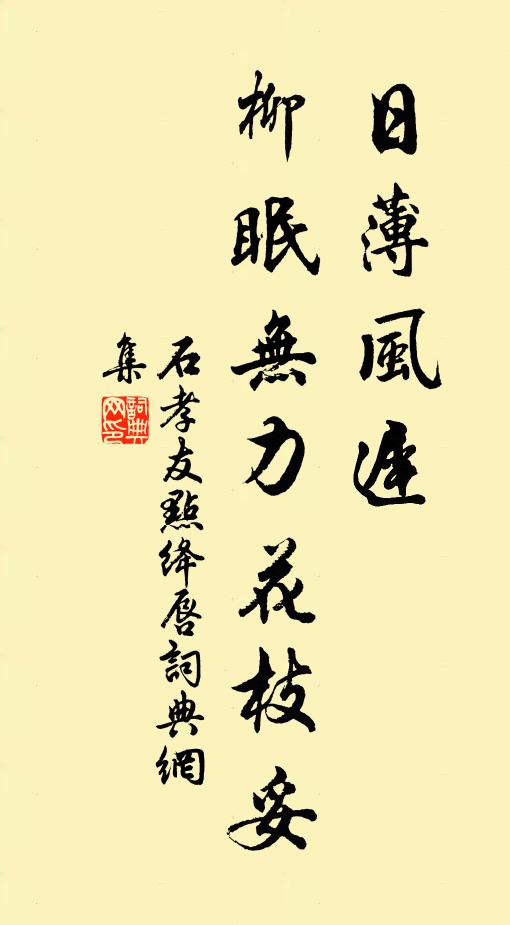 日薄風遲
柳眠無力花枝妥
石孝友點絳唇詞典網
集
詞典網印